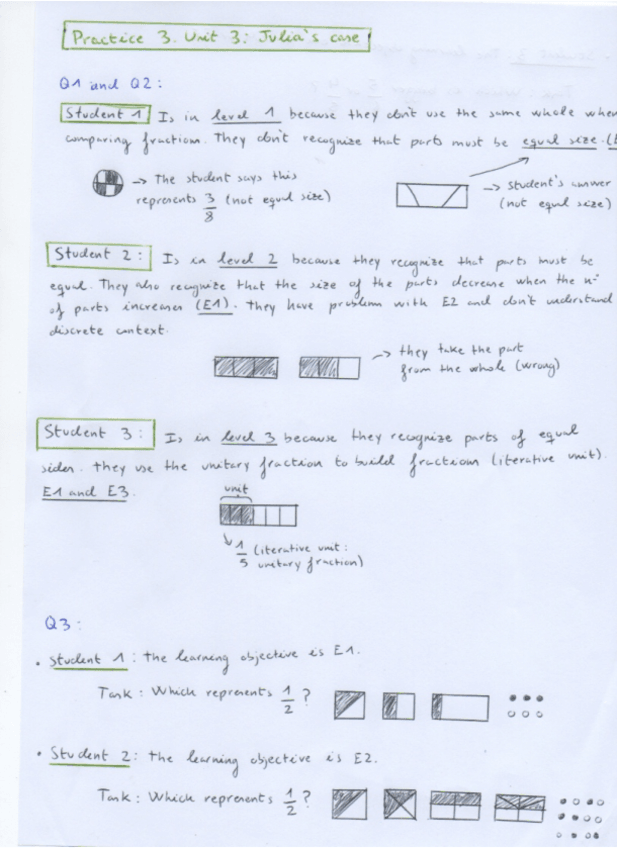 Practice 3. Unit 3: Julia's case
Q1 and Q2:
Student 1 Is in level 1 because they don't use the same whole when
comparing fractions. They don't recognize that parts must be equal size.
→ The student says this
represents 3/8 (not equal size)
→ student's answer
(not equal size)
Student 2: Is in level 2 because they recognize that parts must be
equal. They also recognize that the size of the parts decrease when the nº
of parts increases (E1). They have problem with E2 and don't understand
discrete context.
→ they take the part
from the whole (wrong)
Student 3: Is in level 3 because they recognize parts of equal
sides. They use the unitary fraction to build fractions (iterative unit).
E1 and E3.
unit
1/5 (iterative unit:
unitary fraction)
Q3:
• Student 1: the learning objective is E1.
Task: Which represents 1/2?
• Student 2: the learning objective is E2.
Task: Which represents 1/2?